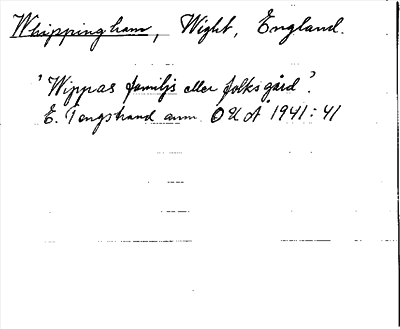 Whippingham, Wight, England.
'Wippas familjs eller folks gård'.
E. Tengstrand anm. OUÅ 1941:41